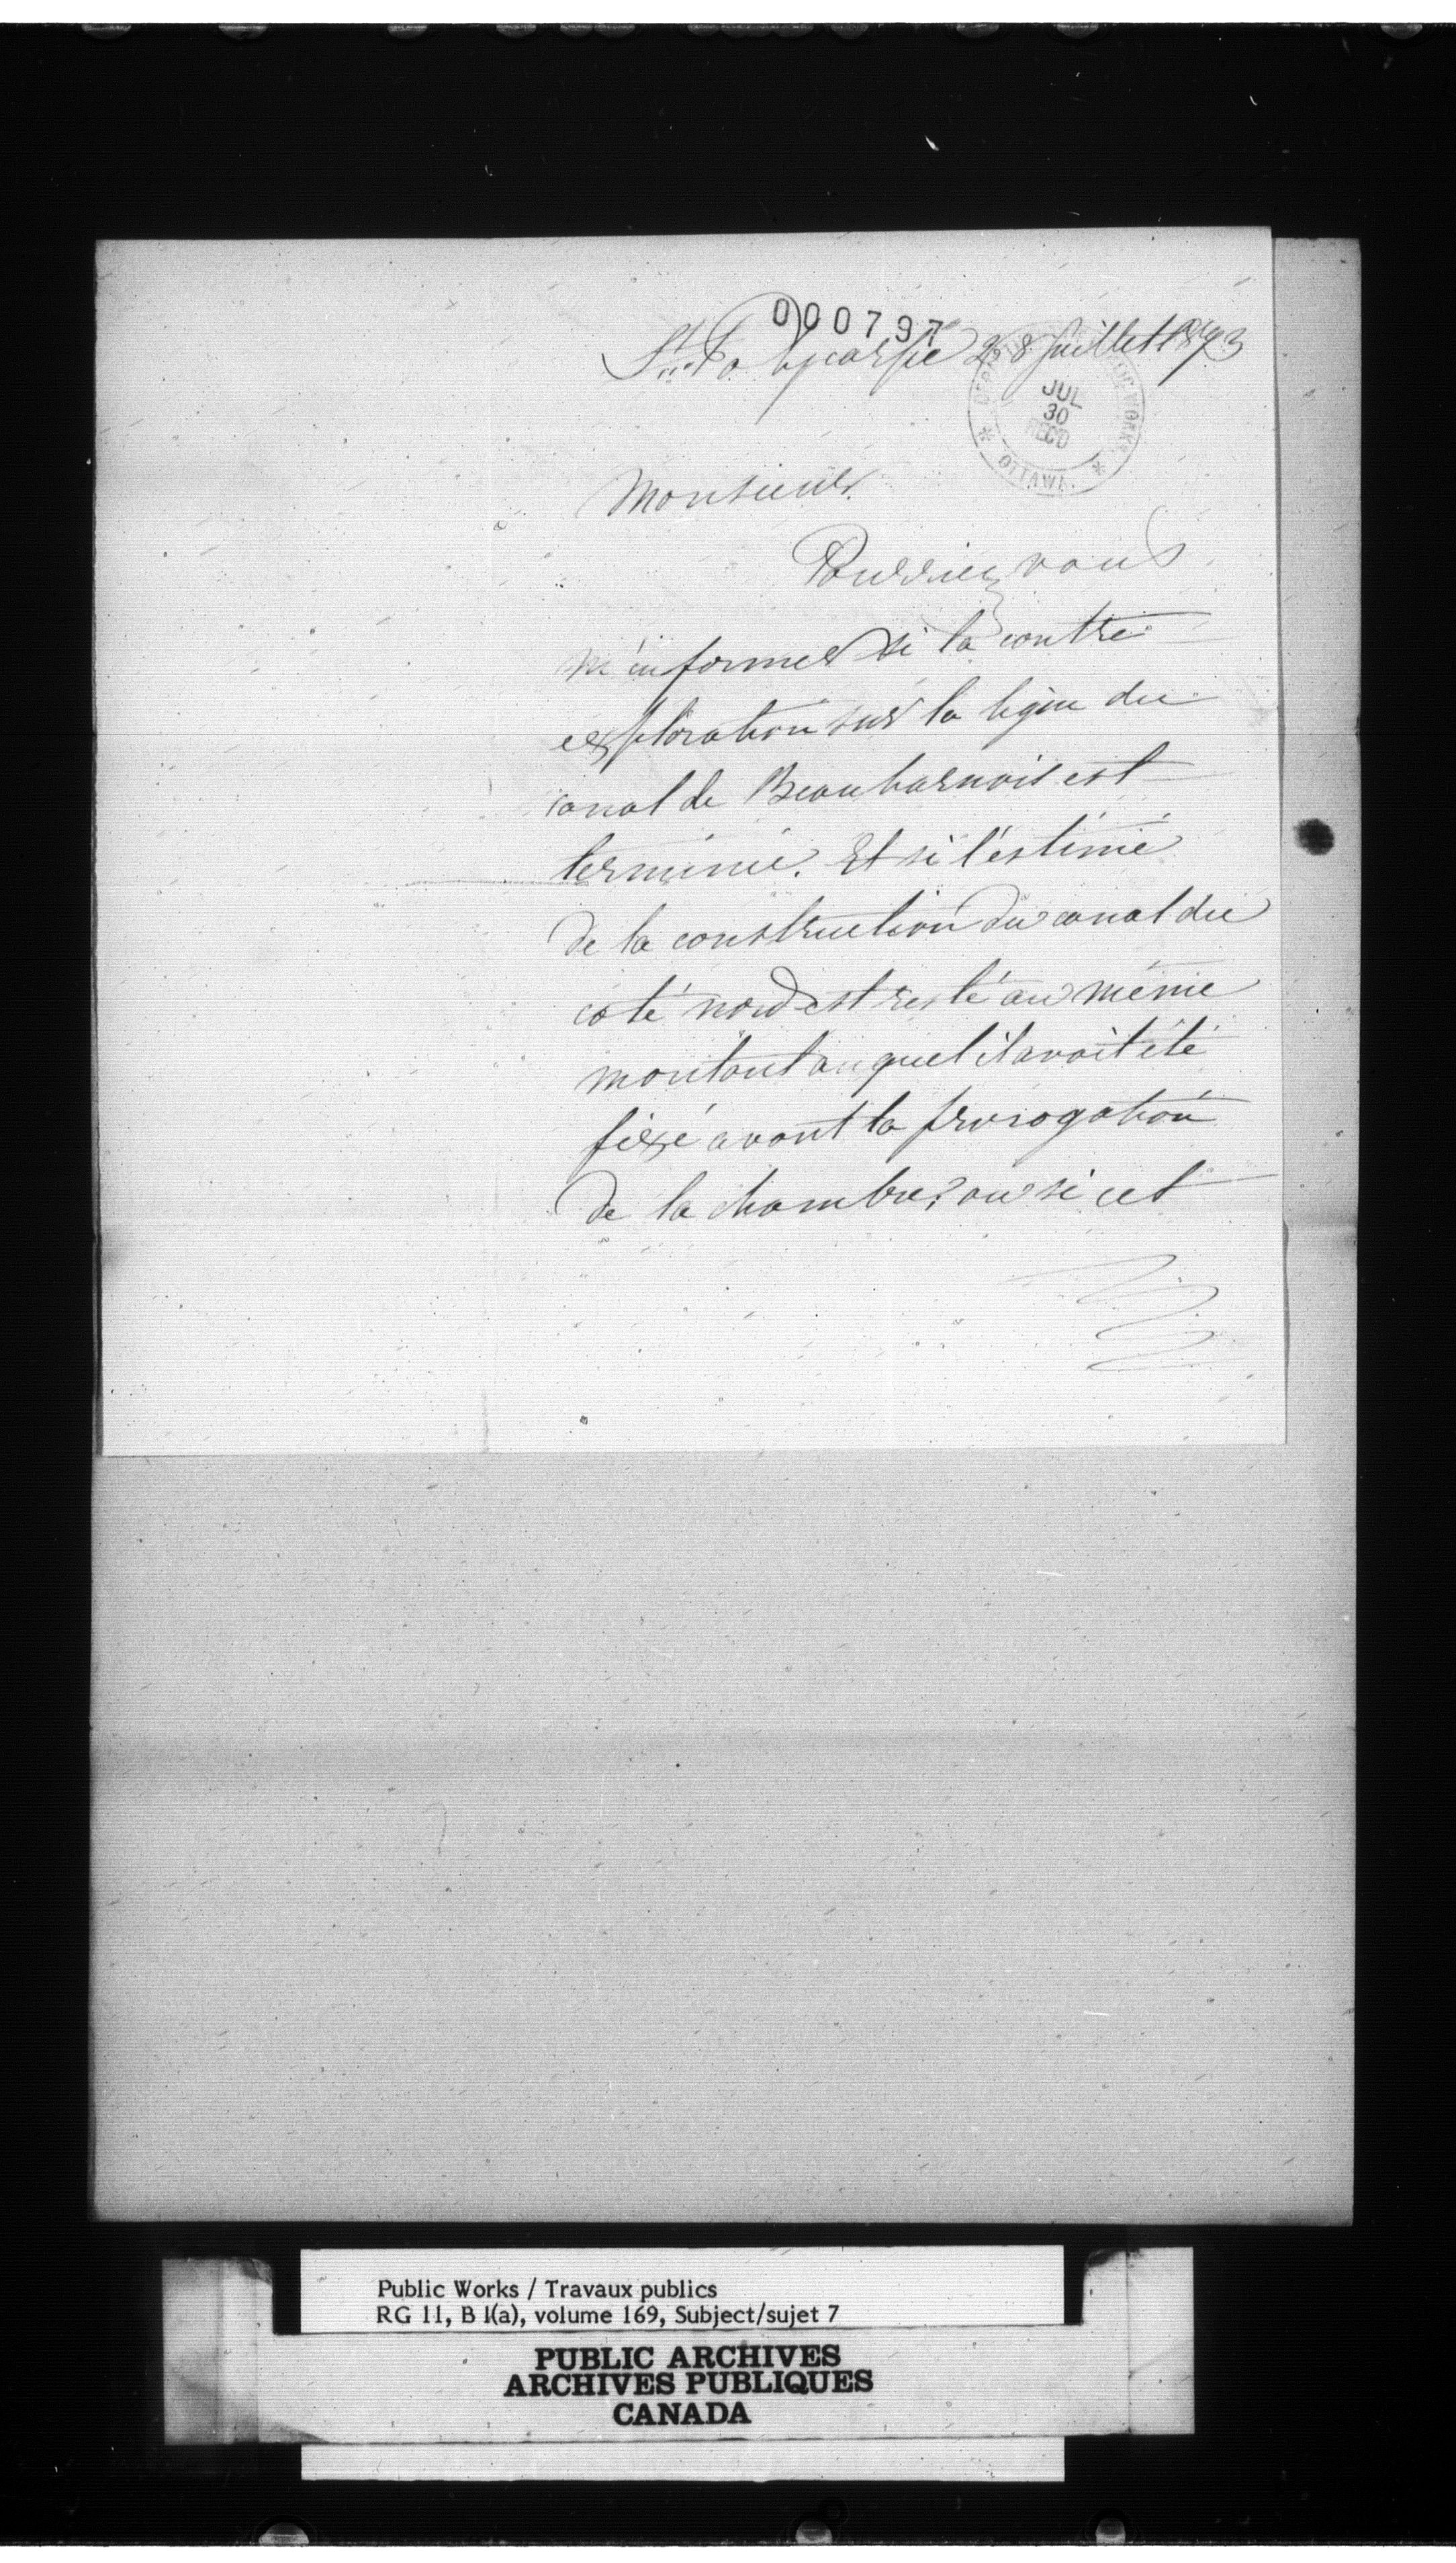 000797
St. Polycarpe 28 Juillet 1873
DEPARTMENT PUBLIC WORKS
JUL
30
REC'D
* OTTAWA. *
Monsieur.
Pourriez vous
m'informer si la contre
exploration sur la ligne du
canal de Beauharnois est
terminé. Et si l'estimé
de la construction du canal du
coté nord est resté au même
montant auquel il avait été
fixé avant la prorogation
de la chambre, ou si cet
Public Works / Travaux publics
RG 11, B 1(a), volume 169, Subject/sujet 7
PUBLIC ARCHIVES
ARCHIVES PUBLIQUES
CANADA